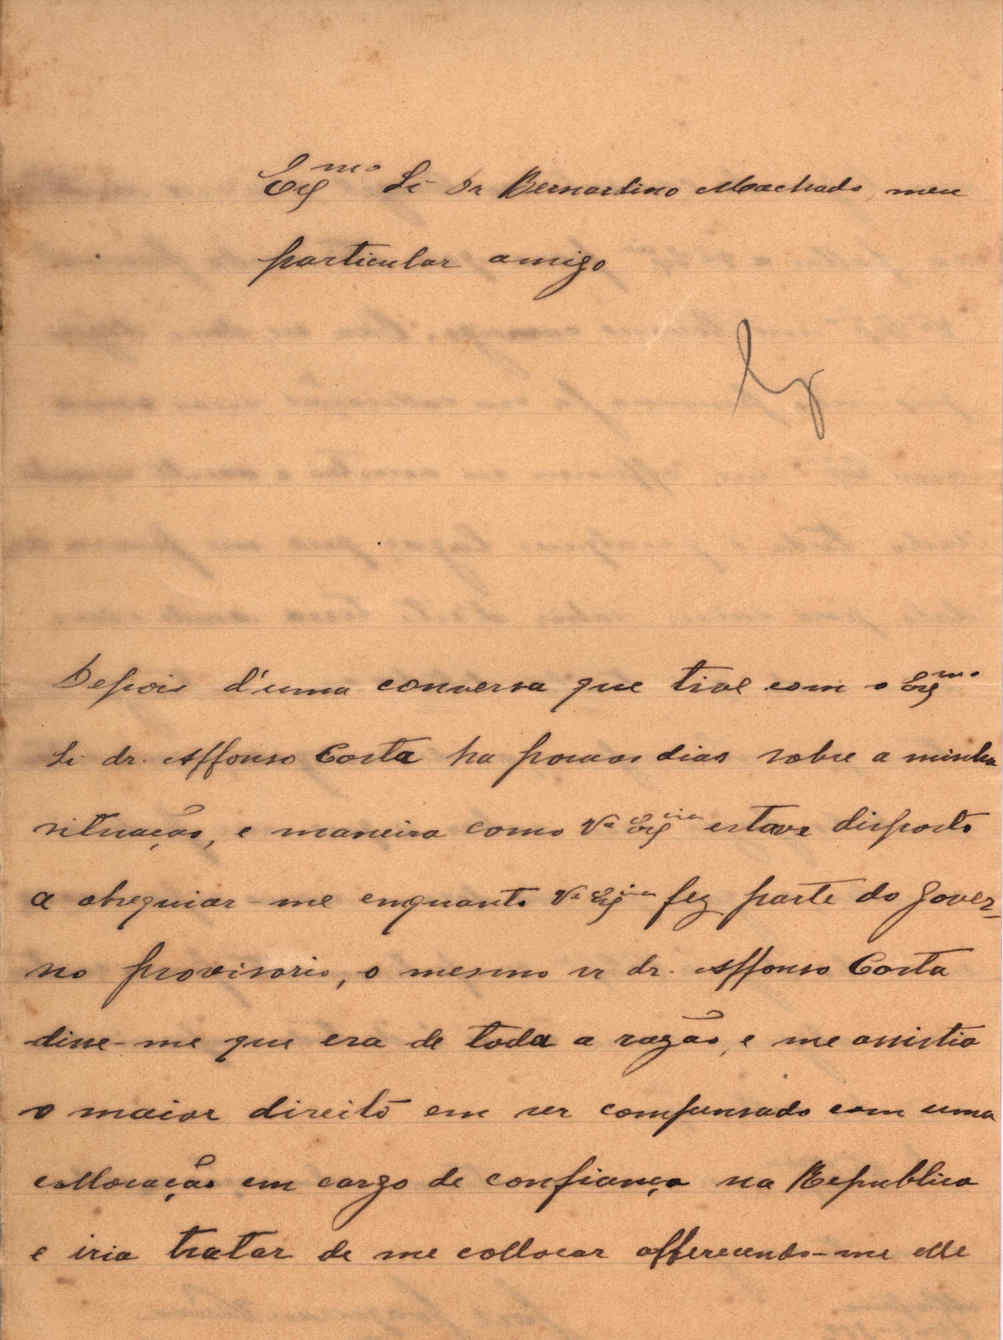 Exmo Sr Dr Bernardino Machado, meu
particular amigo
Depois d'uma conversa que tive com o Exmo
Sr. dr. Affonso Costa ha poucos dias sobre a minha
situação, e maneira como Va Excia estava disposto
a obsequiar-me enquanto Va Excia fez parte do Gover-
no provisorio, o mesmo sr dr. Affonso Costa
disse-me que era de toda a razão, e me assistia
o maior direito em ser compensado com uma
collocação em cargo de confiança na Republica
e iria tratar de me collocar offerecendo-me elle